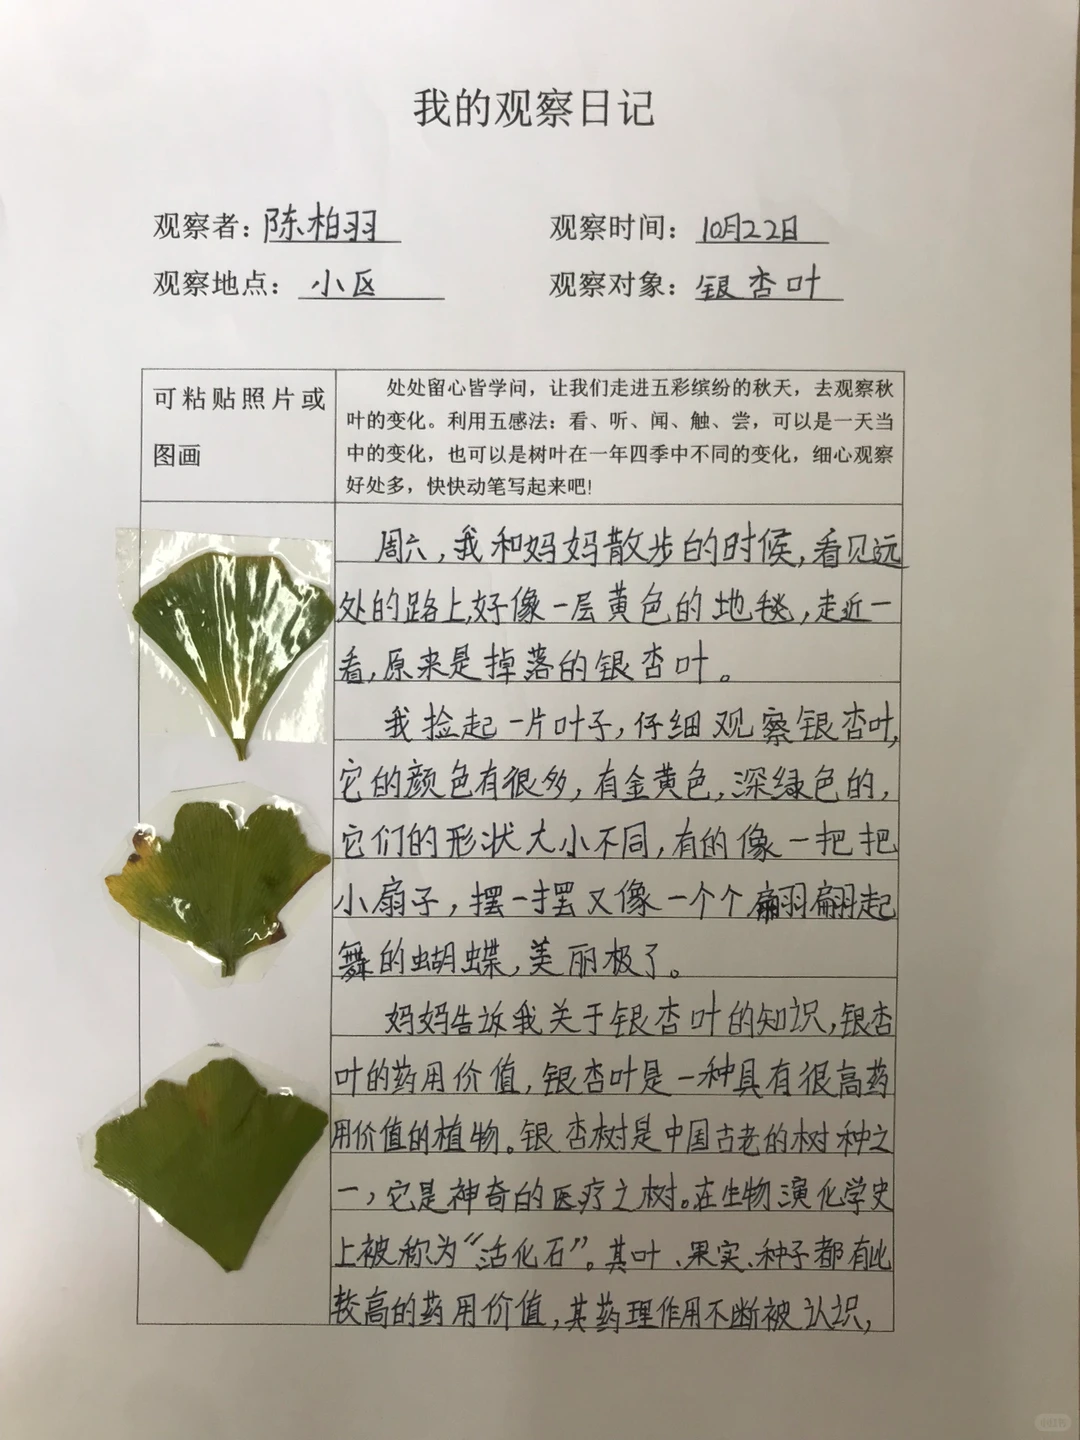 我的观察日记
观察者：陈柏羽 观察时间：10月22日
观察地点：小区 观察对象：银杏叶
可粘贴照片或
图画
处处留心皆学问，让我们走进五彩缤纷的秋天，去观察秋
叶的变化。利用五感法：看、听、闻、触、尝，可以是一天当
中的变化，也可以是树叶在一年四季中不同的变化，细心观察
好处多，快快动笔写起来吧!
周六，我和妈妈散步的时候，看见远
处的路上，好像一层黄色的地毯，走近一
看，原来是掉落的银杏叶。
我捡起一片叶子，仔细观察银杏叶，
它的颜色有很多，有金黄色，深绿色的，
它们的形状大小不同，有的像一把把
小扇子，摆一摆又像一个个翩翩起
舞的蝴蝶，美丽极了。
妈妈告诉我关于银杏叶的知识，银杏
叶的药用价值，银杏叶是一种具有很高药
用价值的植物。银杏树是中国古老的树种之
一，它是神奇的医疗之树。在生物演化学史
上被称为“活化石”。其叶、果实、种子都有此
较高的药用价值，其药理作用不断被认识，